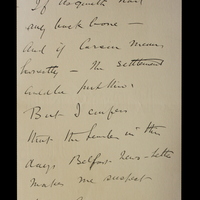 If Asquith had
any back bone —
And if Carson means
honestly — the settlement
could be put thro'
But I confess
that the leader in this
day's Belfast News-Letter
makes me suspect